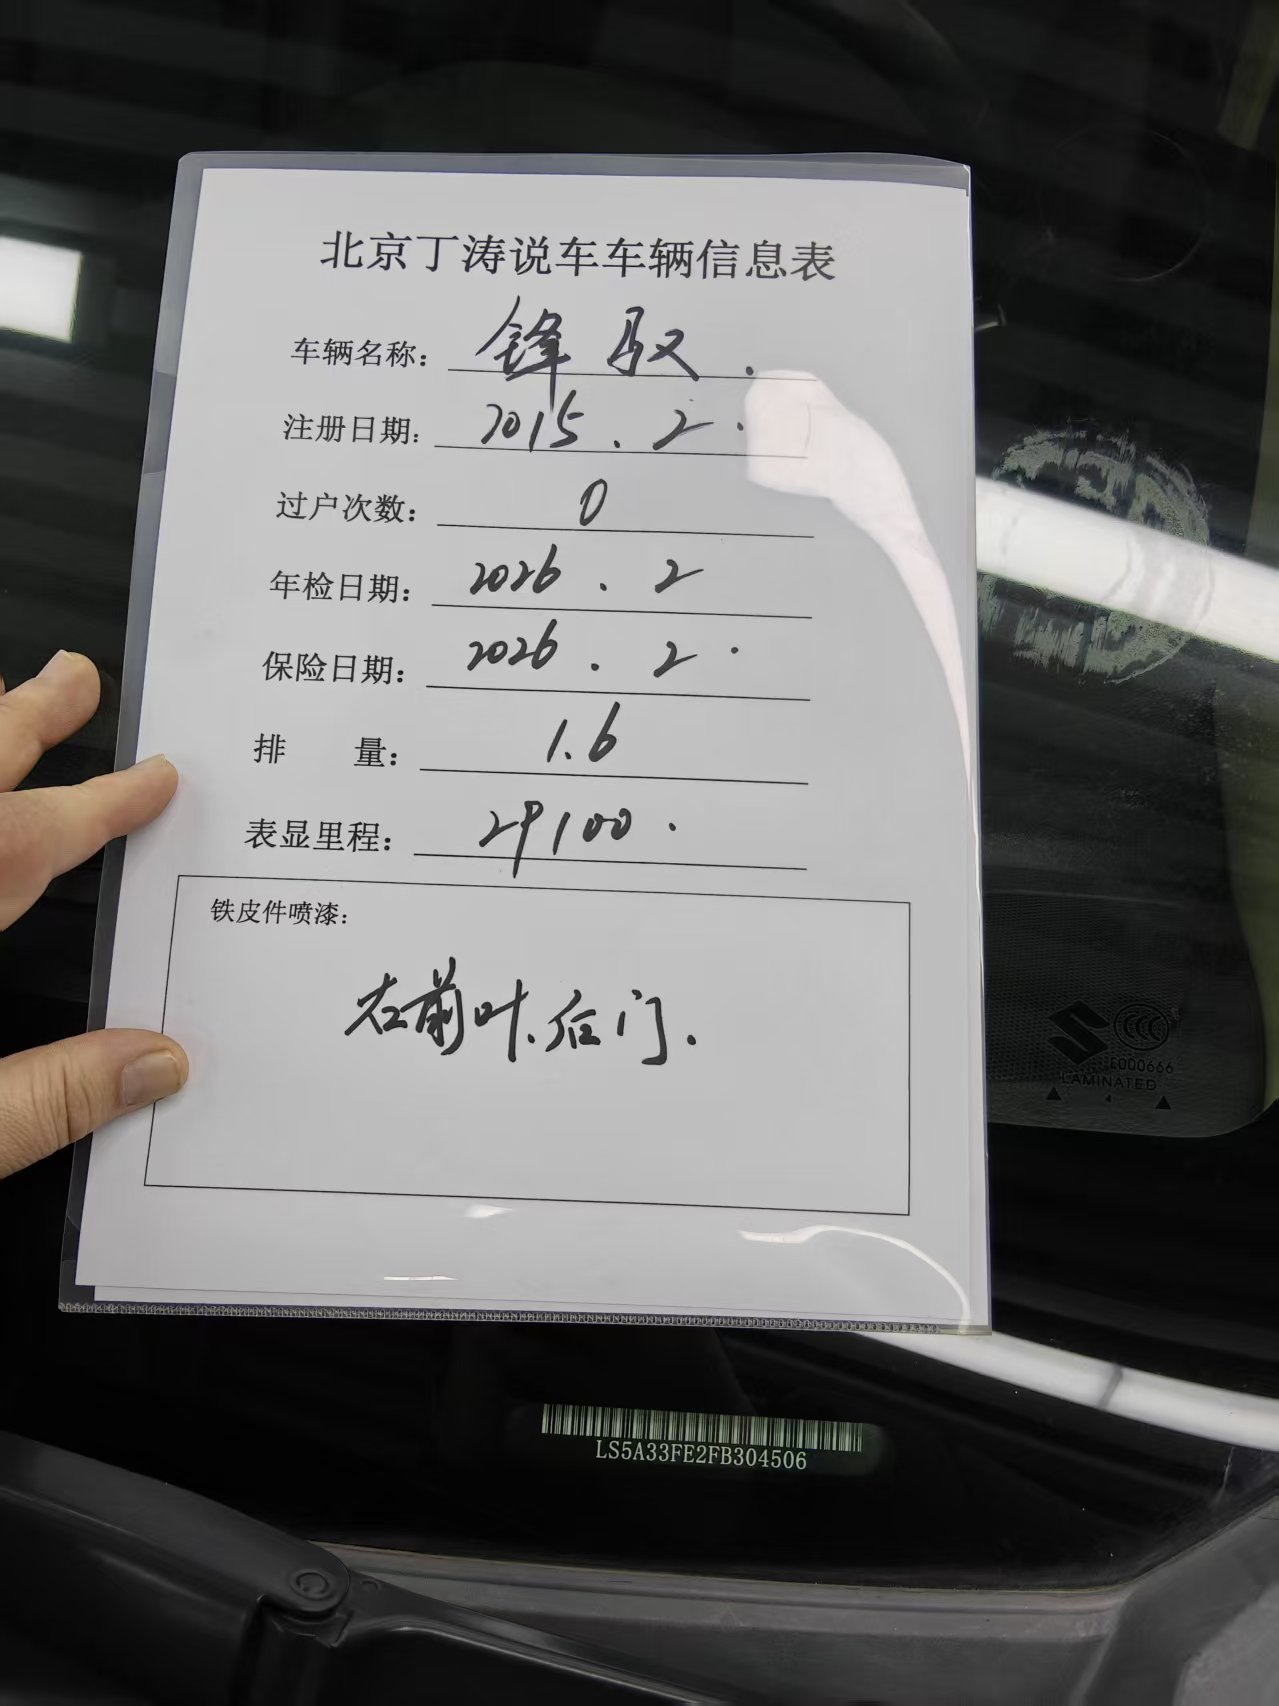 北京丁涛说车车辆信息表
车辆名称：锋驭.
注册日期：2015.2.
过户次数：0
年检日期：2026.2
保险日期：2026.2.
排量：1.6
表显里程：29100.
铁皮件喷漆：
左前叶.后门.
CCC
E000666
LAMINATED
LS5A33FE2FB304506